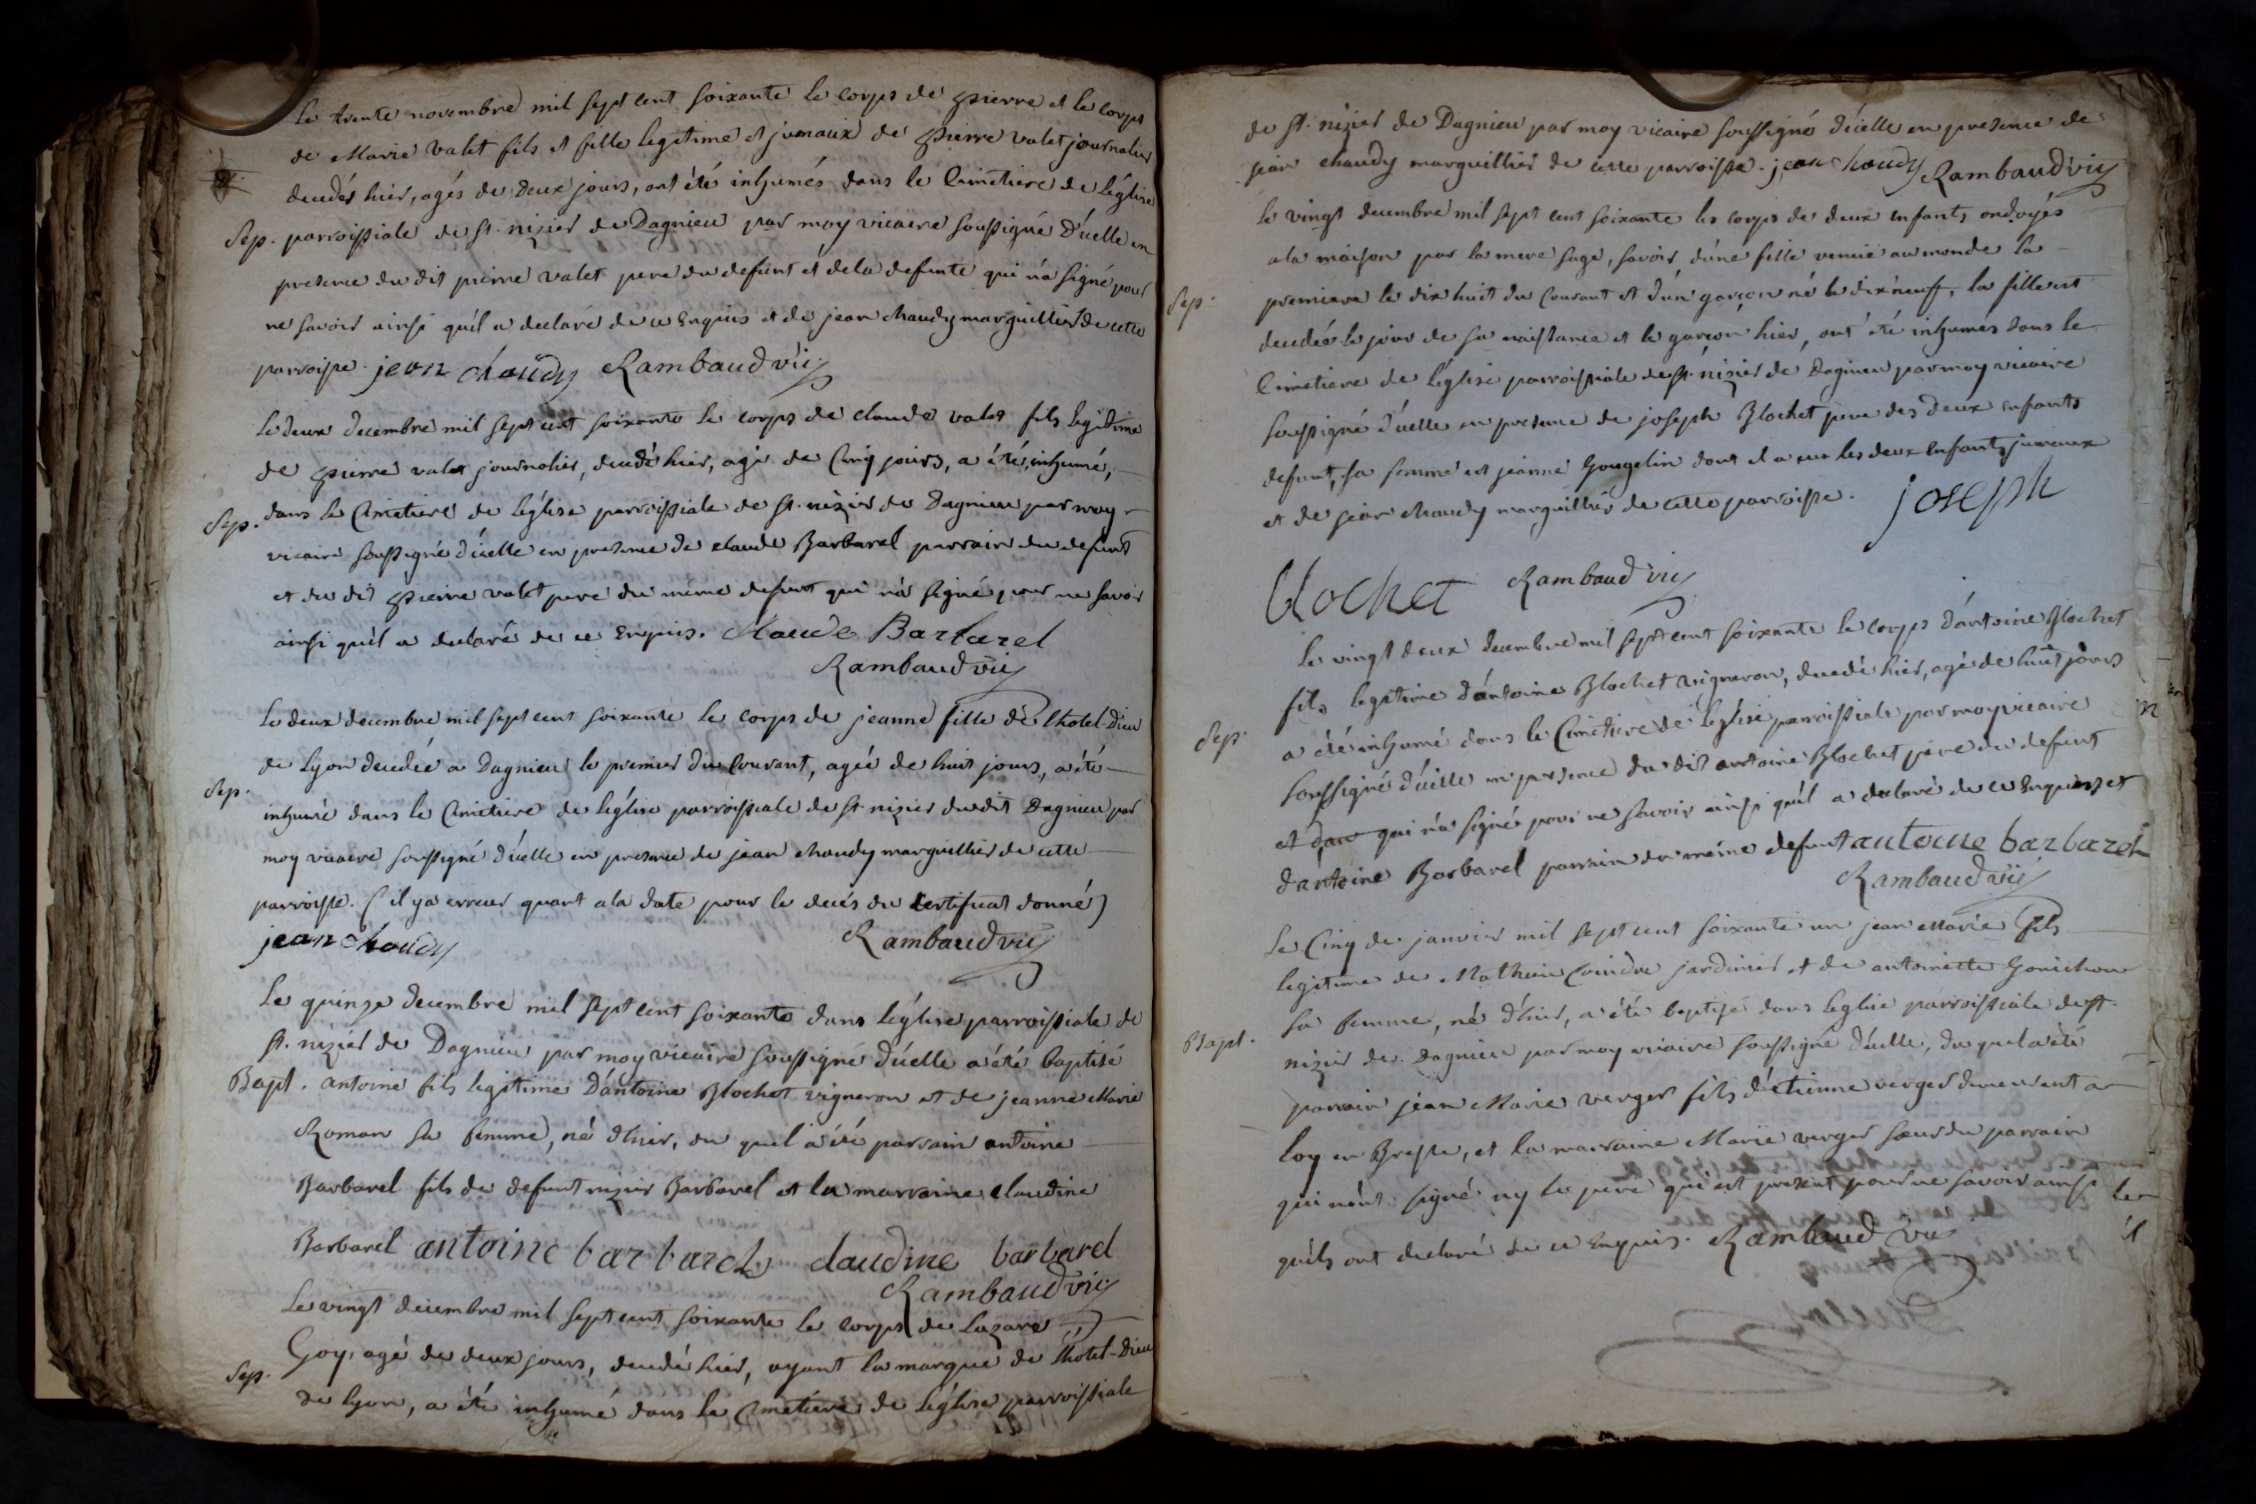 Le trente novembre mil sept cent soixante le corps de pierre et le corps
de Marie valet fils et fille legitime et jumaux de pierre valet journalier
decedés hier, agés de deux jours, ont étés inhumés dans le Cimetiere de l'église
Sep. parroissiale de st. nizier de Dagnieu par moy vicaire soussigné d'icelle en
presence du dit pierre valet pere du defunt et de la defunte qui n'a signé pour
ne savoir ainsi qu'il a declaré de ce Enquis et de jean chaudy marguillier de cette
parroisse. jean chaudy Rambaud vic.
Le deux decembre mil sept cent soixante le corps de claude valet fils legitime
de pierre valet journalier, decedé hier, agé de Cinq jours, a été inhumé,
Sep. dans le Cimetiere de l'église parroissiale de st. nizier de Dagnieu par moy
vicaire soussigné d'icelle en presence de claude Barbarel parrain du defunt
et du dit pierre valet pere du meme defunt qui n'a signé pour ne savoir
ainsi qu'il a declaré de ce Enquis. Claude Barbarel
Rambaud vic
Le deux decembre mil sept cent soixante le corps de jeanne fille de l'hotel-Dieu
de lyon decedée a Dagnieu le premier du Courant, agée de huit jours, a été
Sep.
inhumé dans le Cimetiere de l'église parroissiale de st. nizier du dit Dagnieu par
moy vicaire soussigné d'icelle en presence de jean chaudy marguillier de cette
parroisse. (il y a erreur quant a la date pour le decés du Certificat donné)
jean chaudy Rambaud vic
Le quinze decembre mil sept cent soixante dans l'église parroissiale de
st. nizier de Dagnieu par moy vicaire soussigné d'icelle a été baptisé
Bapt. antoine fils legitime d'antoine Blochet vigneron et de jeanne Marie
Roman sa femme, né d'hier, du quel a été parrain antoine
Barbarel fils de defunt nizier Barbarel et la marraine claudine
Barbarel antoine barbarel claudine barbarel
Rambaud vic
Le vingt decembre mil sept cent soixante le corps de Lazare
Goy, agé de deux jours, decedé hier, ayant la marque de l'hotel-Dieu
Sep.
de lyon, a été inhumé dans le Cimetiére de l'église parroissiale
de st. nizier de Dagnieu par moy vicaire soussigné d'icelle en presence de
jean chaudy marguillier de cette parroisse. jean chaudy Rambaud vic
Le vingt decembre mil sept cent soixante les corps de deux enfants ondoyés
a la maison par la mere sage, savoir, d'une fille venuë au monde la
Sep.
premiere le dix huit du Courant et d'un garçon né le dix neuf, la fille est
decedée le jour de sa naissance et le garçon hier, ont été inhumés dans le
Cimetiere de l'église parroissiale de st. nizier de Dagnieu par moy vicaire
soussigné d'icelle en presence de joseph Blochet pere des deux enfants
defunt, sa femme est jeanne Gougelin dont il a eu les deux Enfants jumeaux
et de jean chaudy marguillier de cette parroisse. joseph
blochet Rambaud vic
Le vingt deux decembre mil sept cent soixante le corps d'antoine Blochet
fils legitime d'antoine Blochet vigneron, decedé hier, agé de huit jours
Sep.
a été inhumé dans le Cimetiere de l'eglise parroissiale par moy vicaire
soussigné d'icelle en presence du dit antoine Blochet pére du defunt
et qui n'a signé pour ne savoir ainsi qu'il a declaré de ce Enquis et
d'antoine Barbarel parrain du méme defunt antoine barbarel
Rambaud vic
Le Cinq de janvier mil sept cent soixante un jean Marie fils
legitime de Mathieu Coindre jardinier et de antoinette Gonichon
sa femme, né d'hier, a été baptisé dans l'eglise parroissiale de st.
Bapt.
nizier de Dagnieu par moy vicaire soussigné d'icelle, du quel a été
parrain jean Marie verger fils d'etienne verger demeurent a
loy en Bresse, et la marraine Marie verger soeur du parrain
qui n'ont signé ny le pere qui est present pour ne savoir ainsi
qu'ils ont declaré de ce Enquis. Rambaud vic